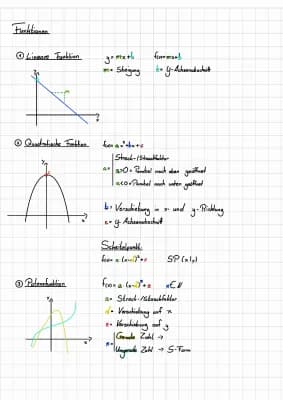 Funktionen
① Lineare Funktion
y = mx+b   f(x)=mx+b
m = Steigung   b = y-Achsenabschnitt
② Quadratische Funktion
Streck-/Stauchfaktor
a>0 = Parabel nach oben geöffnet
a<0 = Parabel nach unten geöffnet
b = Verschiebung in x- und y-Richtung
c = y-Achsenabschnitt
Scheitelpunkt:
SP(x|y)
③ Potenzfunktion
a = Streck-/Stauchfaktor
d = Verschiebung auf x
e = Verschiebung auf y
Gerade Zahl →
Ungerade Zahl → S-Form